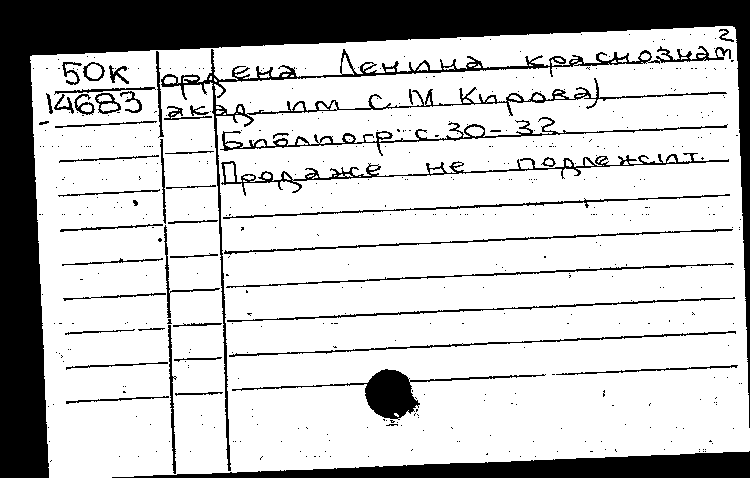 2
50к ордена Ленина краснознам
14683 акад. им С. М. Кирова).
Библиогр: с. 30-32.
Продаже не подлежит.